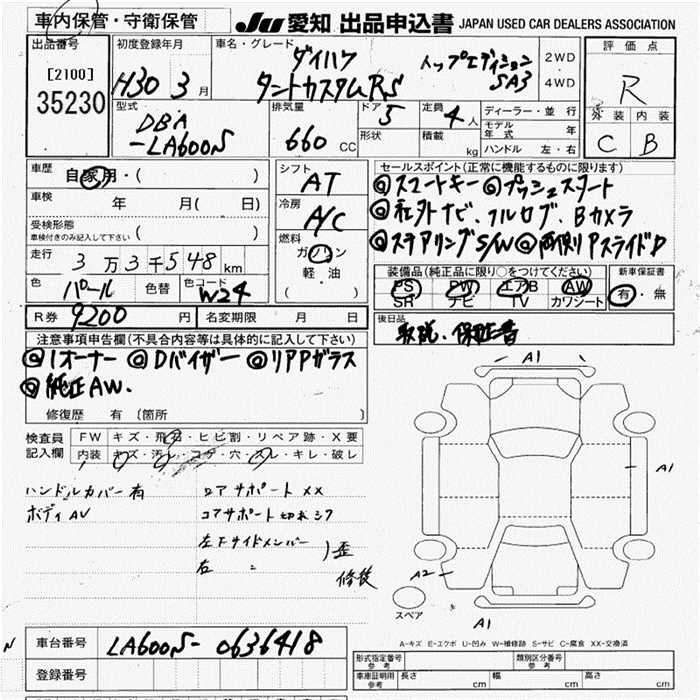 車内保管・守衛保管
JU 愛知 出品申込書 JAPAN USED CAR DEALERS ASSOCIATION
出品番号 [2100] 35230
初度登録年月 H30 3月
車名・グレード ダイハツ タントカスタムRS トップエディション SA3
2WD 4WD
評価点 R
外装 C 内装 B
型式 DBA-LA600S
排気量 660 CC
ドア 5
形状
定員 4人
積載 kg
ディーラー・並行
モデル年式 年
ハンドル 左・右
車歴 自家用・( )
車検 年 月 ( 日)
受検形態 車検付きのみ記入して下さい ( )
走行 3万3千548km
色 パール 色替 色コード W24
R券 9200円 名変期限 月 日
シフト AT
冷房 A/C
燃料 ガソリン 軽・油 ( )
セールスポイント(正常に機能するものに限ります)
◎スマートキー ◎プッシュスタート
◎社外ナビ、フルセグ、Bカメラ
◎ステアリングS/W ◎両側PスライドD
装備品(純正品に限り○をつけてください)
PS PW エアB AW
SR ナビ TV カワシート
新車保証書 有・無
後日品 取説、保証書
注意事項申告欄(不具合内容等は具体的に記入して下さい)
◎1オーナー ◎Dバイザー ◎リアPガラス
◎純正AW.
修復歴 有 〔箇所
検査員記入欄
FW キズ・飛石・ヒビ割・リペア跡・X要
内装 キズ・汚レ・コゲ・穴・スレ・キレ・破レ
ハンドルカバー有 コアサポート XX
ボディAV コアサポート切れ
左下サイドメンバー
右 〃
)歪 修復
A1
A1
A2
A1
スペア
A-キズ E-エクボ U-凹み W-補修跡 S-サビ C-腐食 XX-交換済
車台番号 LA600S-0636418
登録番号
形式指定番号 参考
類別区分番号 参考
車庫証明用 参考 長さ cm 幅 cm 高さ cm